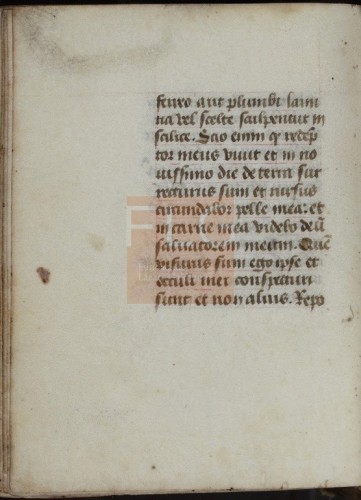 ferro aut plumbi lami
na vel scelte sculpentur in
scilice. Scio enim q̃ redẽp
tor meus viuit et in no
uissimo die de terra sur
recturus sum et rursus
circundabor pelle mea: et
in carne mea videbo deũ
saluatorem meum. Quẽ
visurus sum ego ipse et
occuli mei conspecturi
sunt et non alius. Repo